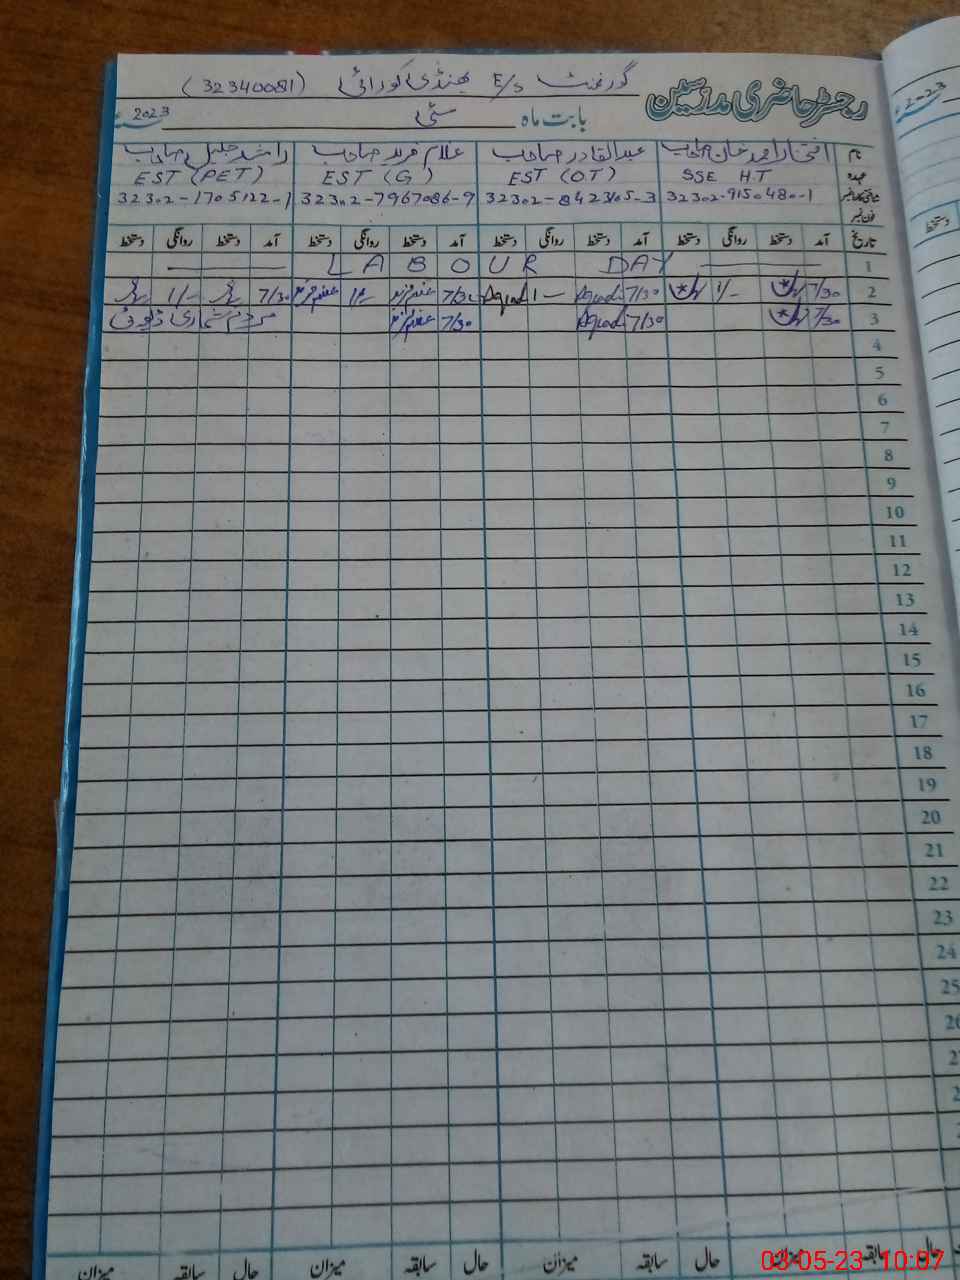 رجسٹر حاضری مدرسین گورنمنٹ E/S ہنڈی کورائی (32340081)
بابت ماہ مئی 2023ء
نام افتخار احمد خان صاحب عبدالقادر صاحب غلام فرید صاحب راشد جلیل صاحب
عہدہ SSE H.T EST (O.T) EST (G) EST (PET)
شناختی کارڈ نمبر 32302-9150480-1 32302-8423105-3 32302-7967086-9 32302-1705122-1
فون نمبر
تاریخ آمد دستخط روانگی دستخط آمد دستخط روانگی دستخط آمد دستخط روانگی دستخط آمد دستخط روانگی دستخط
1 LABOUR DAY
2 7/30 1/- 7/30 Aqadi 1- Aqadi 7/30 غلام فرید 1/- غلام فرید 7/30 1/-
3 7/30 7/30 Aqadi 7/30 غلام فرید مردم شماری ڈیوٹی
4
5
6
7
8
9
10
11
12
13
14
15
16
17
18
19
20
21
22
23
24
25
26
حال سابقہ میزان حال سابقہ میزان حال سابقہ میزان حال سابقہ میزان
2023ء
دستخط
03-05-23 10:07